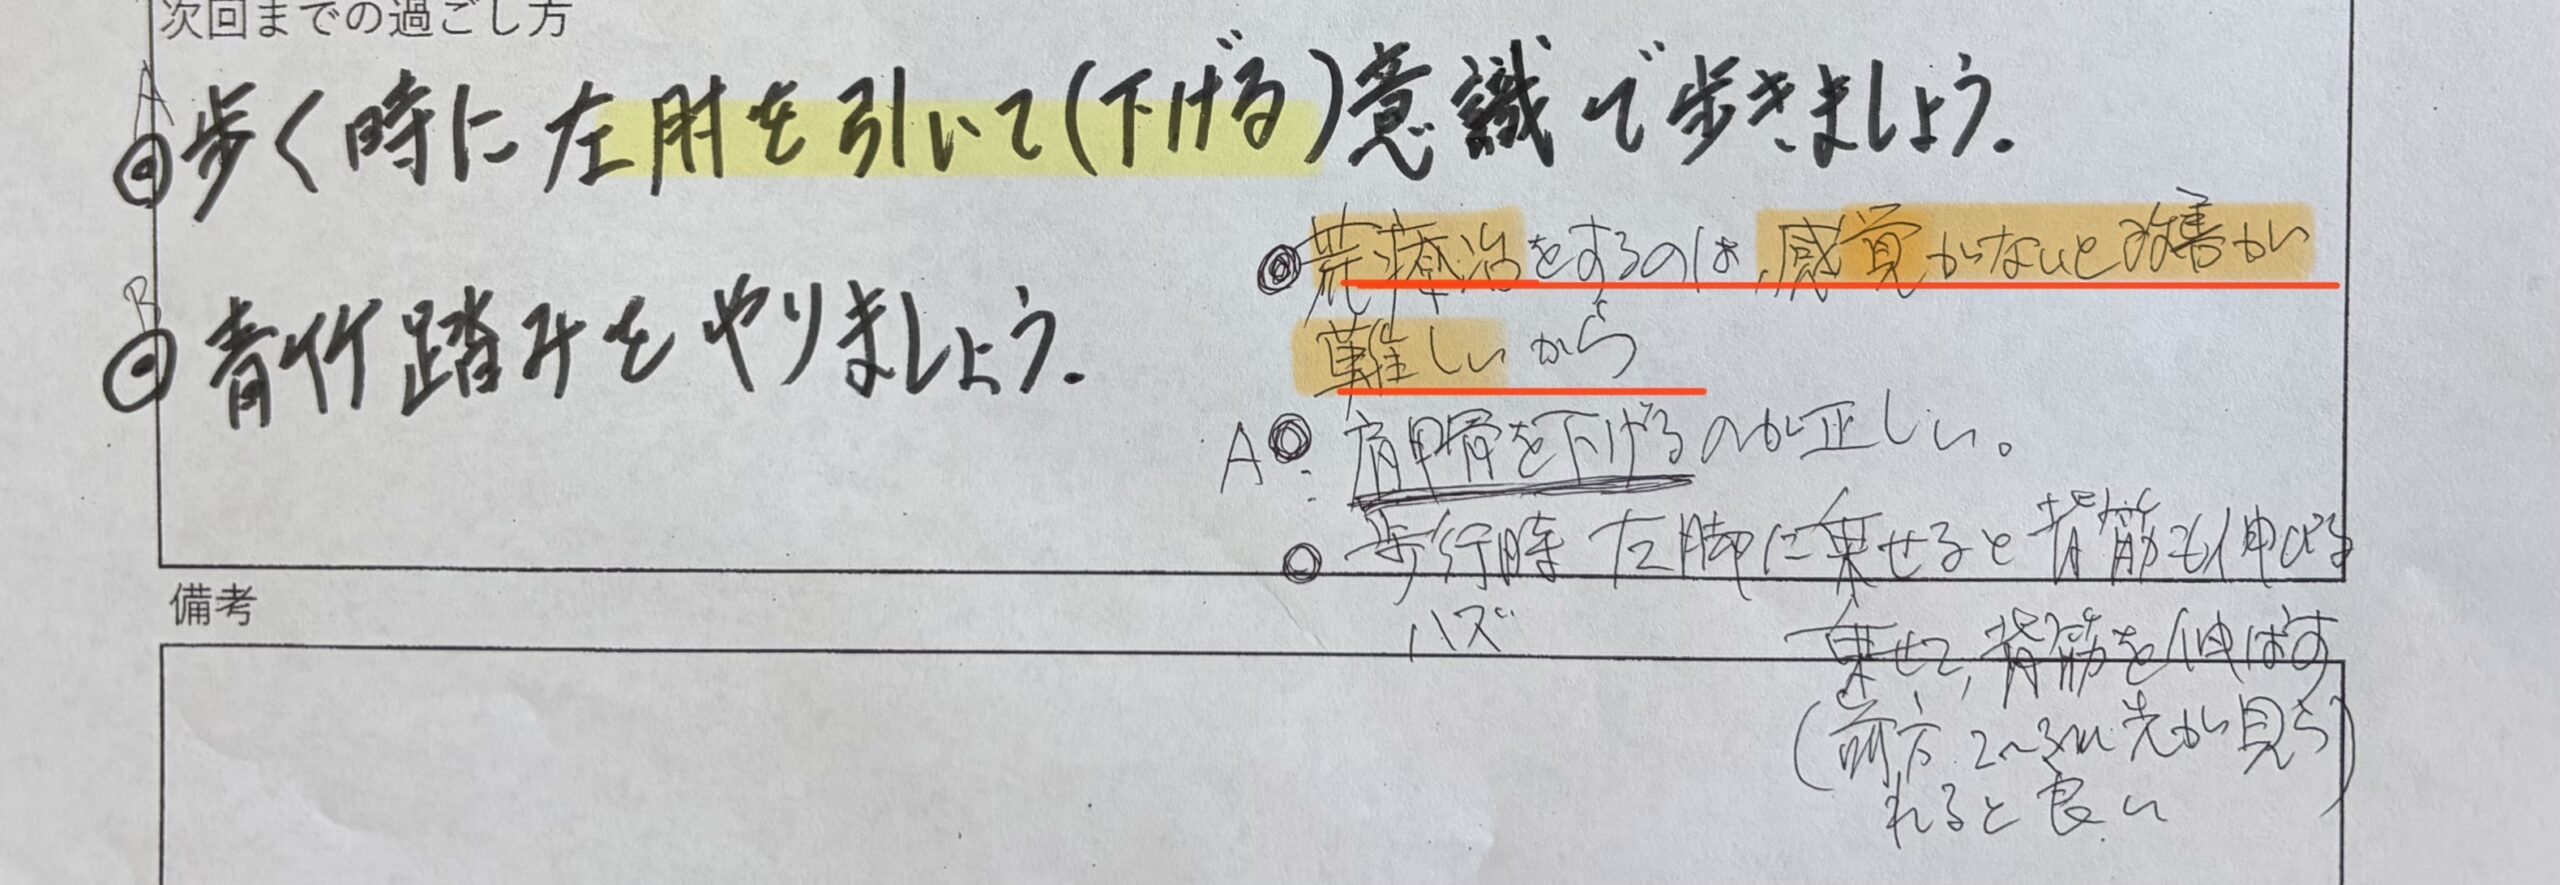 次回までの過ごし方
A
◎歩く時に左肘を引いて(下げる)意識で歩きましょう.
◎荒療治をするのは、感覚がないと改善が
難しいから
B
◎青竹踏みをやりましょう.
A◎:肩甲骨を下げるのが正しい。
○歩行時 左脚に乗せると背筋も伸びる
ハズ
乗せて、背筋を伸ばす
(前方2~3m先が見ら
れると良い)
備考